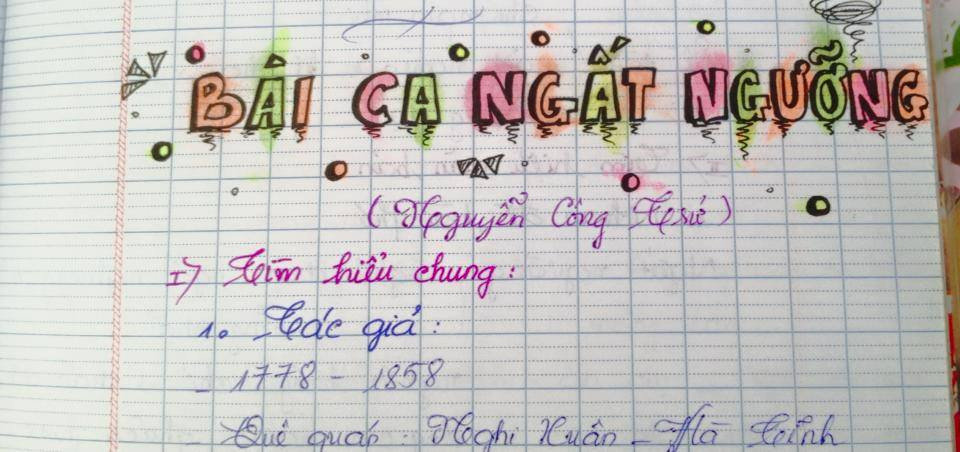 BÀI CA NGẤT NGƯỠNG
(Nguyễn Công Trứ)
I) Tìm hiểu chung:
1. Tác giả:
- 1778 - 1858
- Quê quán: Nghi Xuân - Hà Tĩnh